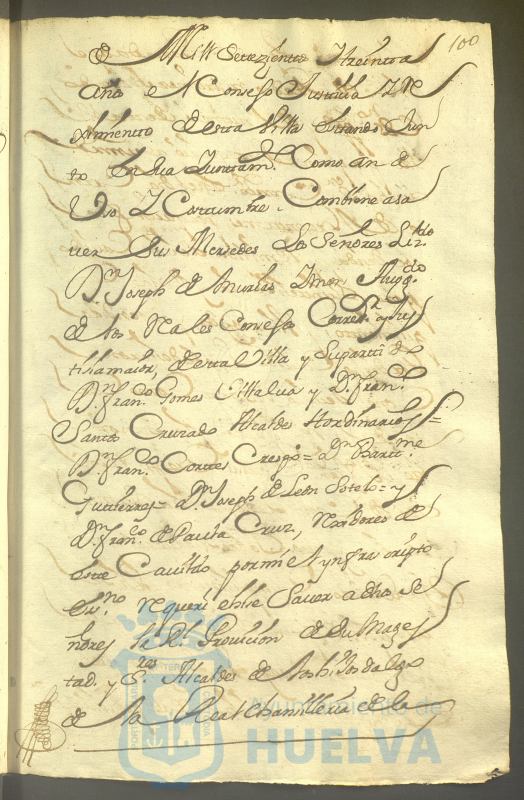 100
de Mill Setezientos treinta
años el Consejo Justizia Y Re
ximiento de esta Villa estando Jun
to en su Juntam.to Como an de
Uso Y Costumbre. Combiene asa
uer Sus Mersedes Los Señores Liz.do
D.n Joseph de Murias Abog.do
de los Reales Consejos Correx.r y Jus
tisia maior, de esta Villa y Supartido
D.n fran.co Gomes Villalua y D.n fran.co
Santos Cruzado Alcaldes Hordinarios =
D.n fran.co Cortes Crespo = D.n Bart.me
Gutierres = D.n Joseph de Leon Sotelo = y
D.n fran.co de Paula Cruz, Rexidores de
este Cavildo por mi el ynfraescripto
Es.no Requeri e hise Saver a dhos Se
ñores la R.l Provision de Su Mages
tad. y S.res Alcaldes de los hijos dalgo
de la Real Chansilleria de la
Ayuntamiento de
HUELVA